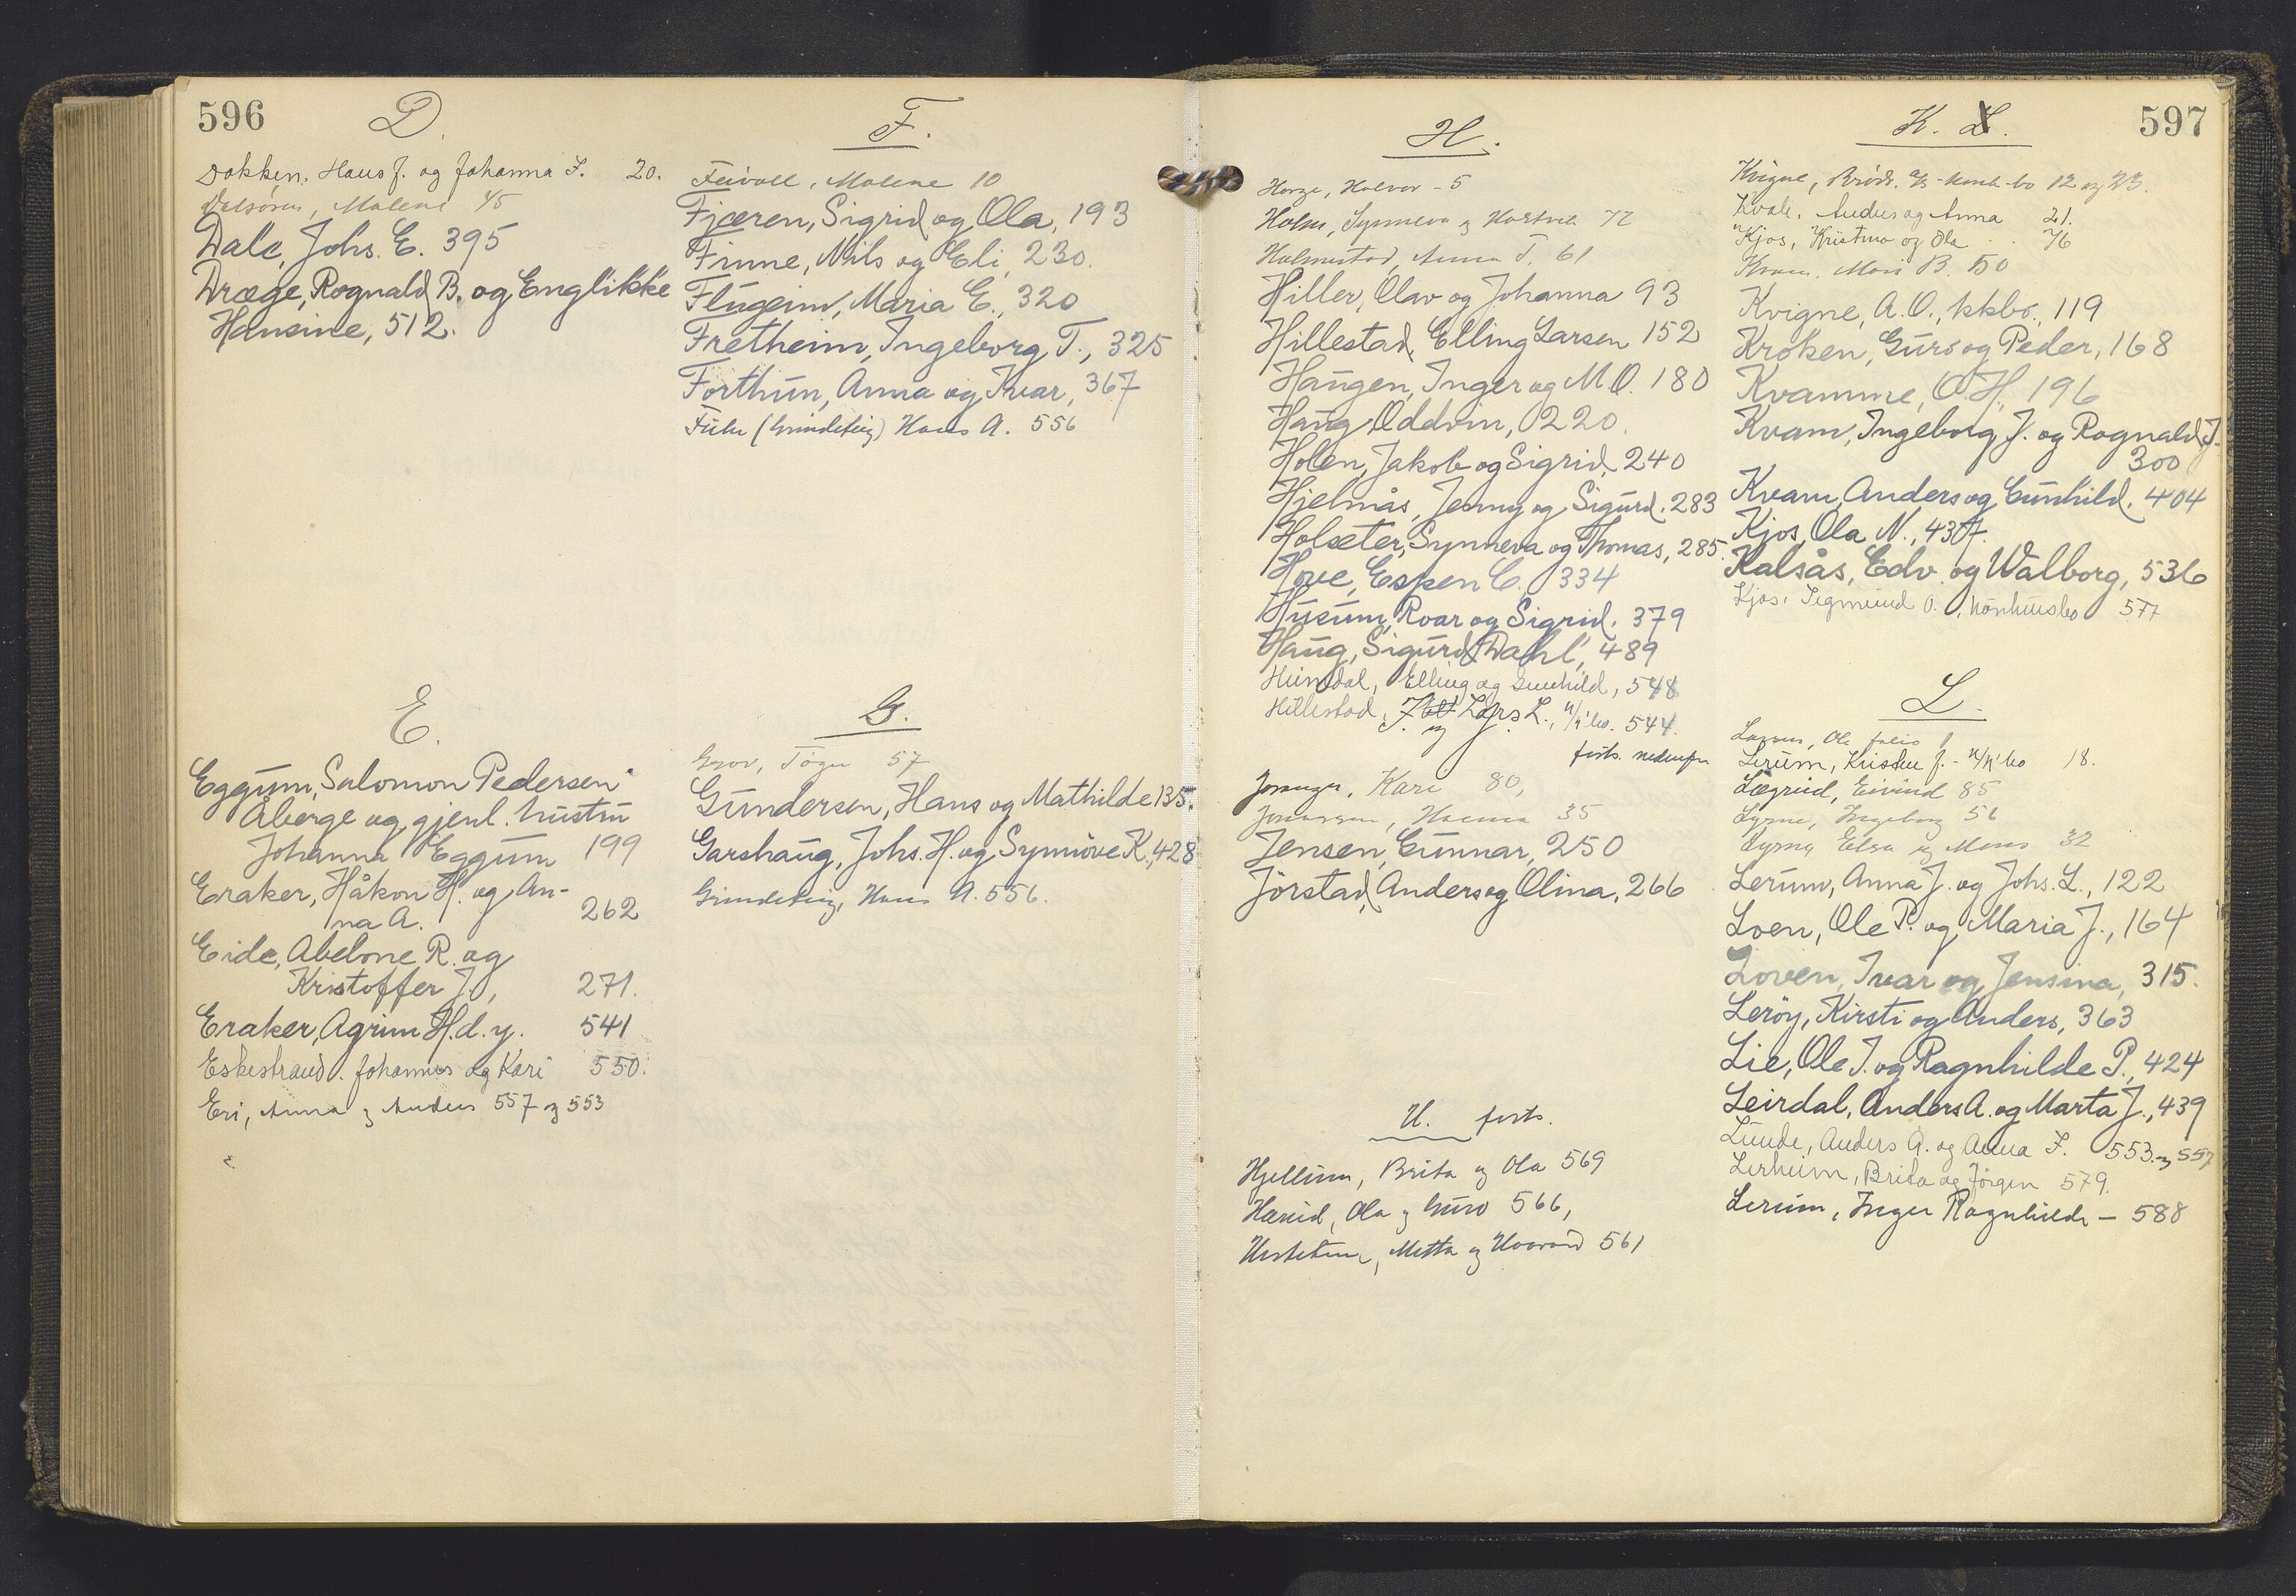 596
D.
Dokken, Hans J. og Johanna F. 20.
Dalsøren, Malene 45
Dale, Johs. E. 395
Dræge, Rognald B. og Englikke
Hansine, 512.
E.
Eggum, Salomon Pedersen
Åberge og gjenl. hustru
Johanna Eggum 199
Eraker, Håkon H. og An-
na A. 262
Eide, Abelone R. og
Kristoffer J., 271.
Eraker, Agrim H. d. y. 541
Eskestrand, Johannes og Kari 550.
Eri, Anna og Anders 557 og 553
F.
Feivoll, Malene 10
Fjæren, Sigrid og Ola, 193
Finne, Nils og Eli, 230.
Flugeim, Maria E., 320
Fretheim, Ingeborg T., 325
Forthun, Anna og Ivar, 367
(Grindeteig) Hans A. 556
G.
Grov, 57
Gundersen, Hans og Mathilde 135.
Garshaug, Johs. H. og Synnöve K, 428
Grindeteig, Hans A. 556.
597
H.
Halvor - 5
Holm, Synneva og 72
Holmestad, Anna T. 61
Hiller, Olav og Johanna 93
Hillestad, Elling Larsen 152
Haugen, Inger og M.O. 180
Haug Oddvin, 220.
Holen, Jakob og Sigrid, 240
Hjelmås, Jenny og Sigurd. 283
Holseter, Synneva og Thomas, 285.
Hove, Espen C. 334
Husum, Roar og Sigrid. 379
Haug, Sigurd Dahl, 489
Heimdal, Elling og Gunhild, 548
Hillestad, Lars L., 544.
forts. nedenfor
J. og J.
Joranger, Kari 80,
Jonassen, Hanna 35
Jensen, Gunnar, 250
Jörstad, Anders og Olina, 266
H. forts.
Hjellum, Brita og Ola 569
Hæreid, Ola og Guro 566,
Hestetun, Metta og Haavard 561
K. L.
Kvigne, Brødr. 12 og 23.
Kvale, Anders og Anna 21.
Kjos, Kristina og Ola 76
Kvam, Mari B. 50
Kvigne, A.O., kkbo., 119
Kroken, Guro og Peder, 168
Kvamme, O.H, 196
Kvam, Ingeborg J. og Rognald J.
300
Kvam, Anders og Gunhild. 404
Kjos, Ola N., 437.
Kalsås, Edv. og Walborg, 536
Kjos, Sigmund O. konkursbo 577
L.
Larsen, Ole folio 1
Lerum, Kristen J. - 18.
Lægreid, Eivind 85
Lyrne, Ingeborg 56
Elsa og Mons 32
Lerum, Anna J. og Johs. L., 122
Loen, Ole P. og Maria J., 164
Loven, Ivar og Jensina, 315.
Leröy, Kirsti og Anders, 363
Lie, Ole J. og Ragnhilde P., 424
Leirdal, Anders A. og Marta J., 439
Lunde, Anders A. og Anna F. 553 og 557
Lerheim, Brita og Jørgen 579.
Lerum, Inger Ragnhilda - 588